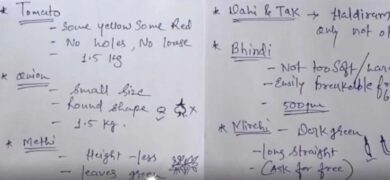 * Tomato
- Some yellow Some Red
- No holes, No loose
- 1.5 kg
* Onion
- Small Size
- Round shape
- 1.5 kg.
* Methi
- Height - less
- leaves green
* Dahi & Tak → Haldiram
Only not
* Bhindi
- Not too Soft /
- Easily breakable
- 500gm
* Mirchi - Dark green
- long straight
- (Ask for free)